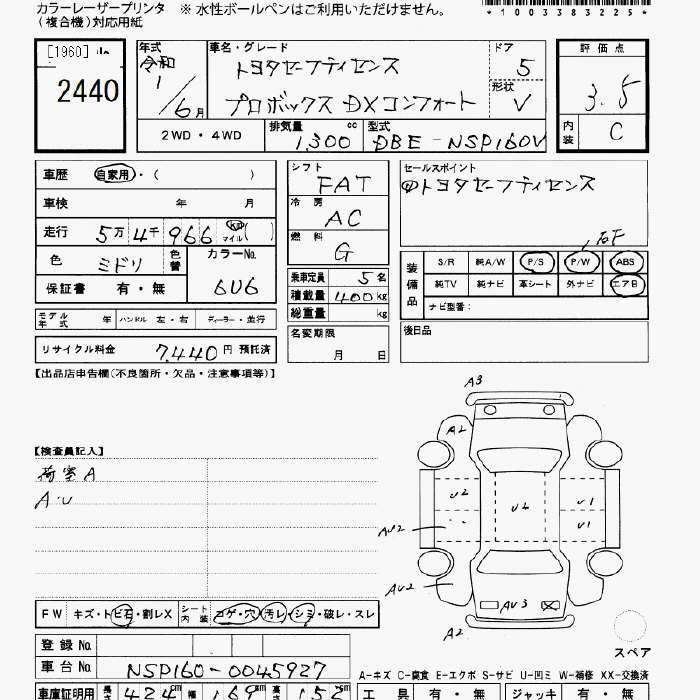 カラーレーザープリンタ ※ 水性ボールペンはご利用いただけません。
(複合機)対応用紙
*1003883225*
[1960]
2440
年式 車名・グレード ドア 評価点
令和 トヨタセーフティセンス 5
1/6月 形状 3.5
プロボックス DXコンフォート V
2WD・4WD 排気量 1300 cc 型式 DBE-NSP160V 内装 C
車歴 自家用・( )
シフト FAT
セールスポイント
④トヨタセーフティセンス
車検 年 月
冷房 AC
走行 5万4千966 km マイル ( )
燃料 G
色 ミドリ 色替 カラーNo. 6U6
保証書 有・無
乗車定員 5名
積載量 400kg
総重量 kg
装備品 S/R 純A/W P/S P/W ABS
純TV 純ナビ 革シート 外ナビ エアB
ナビ型番:
モデル年式 年 ハンドル 左・右 ディーラー・並行
名変期限 月 日
後日品
リサイクル料金 7,440円 預託済
【出品店申告欄(不良箇所・欠品・注意事項等)】
A3
A2
【検査員記入】
荷室A
A・U
U2 U4 U1
AU2 U1
AU2 AU3
A2
スペア
FW キズ・トビ石・割レX シート内装 コゲ・穴 汚レ・シミ・破レ・スレ
登録 No.
車台 No. NSP160-0045927
A-キズ C-腐食 E-エクボ S-サビ U-凹ミ W-補修 XX-交換済
車庫証明用 長さ 424 cm 幅 169 cm 高さ 152 cm 工具 有・無 ジャッキ 有・無